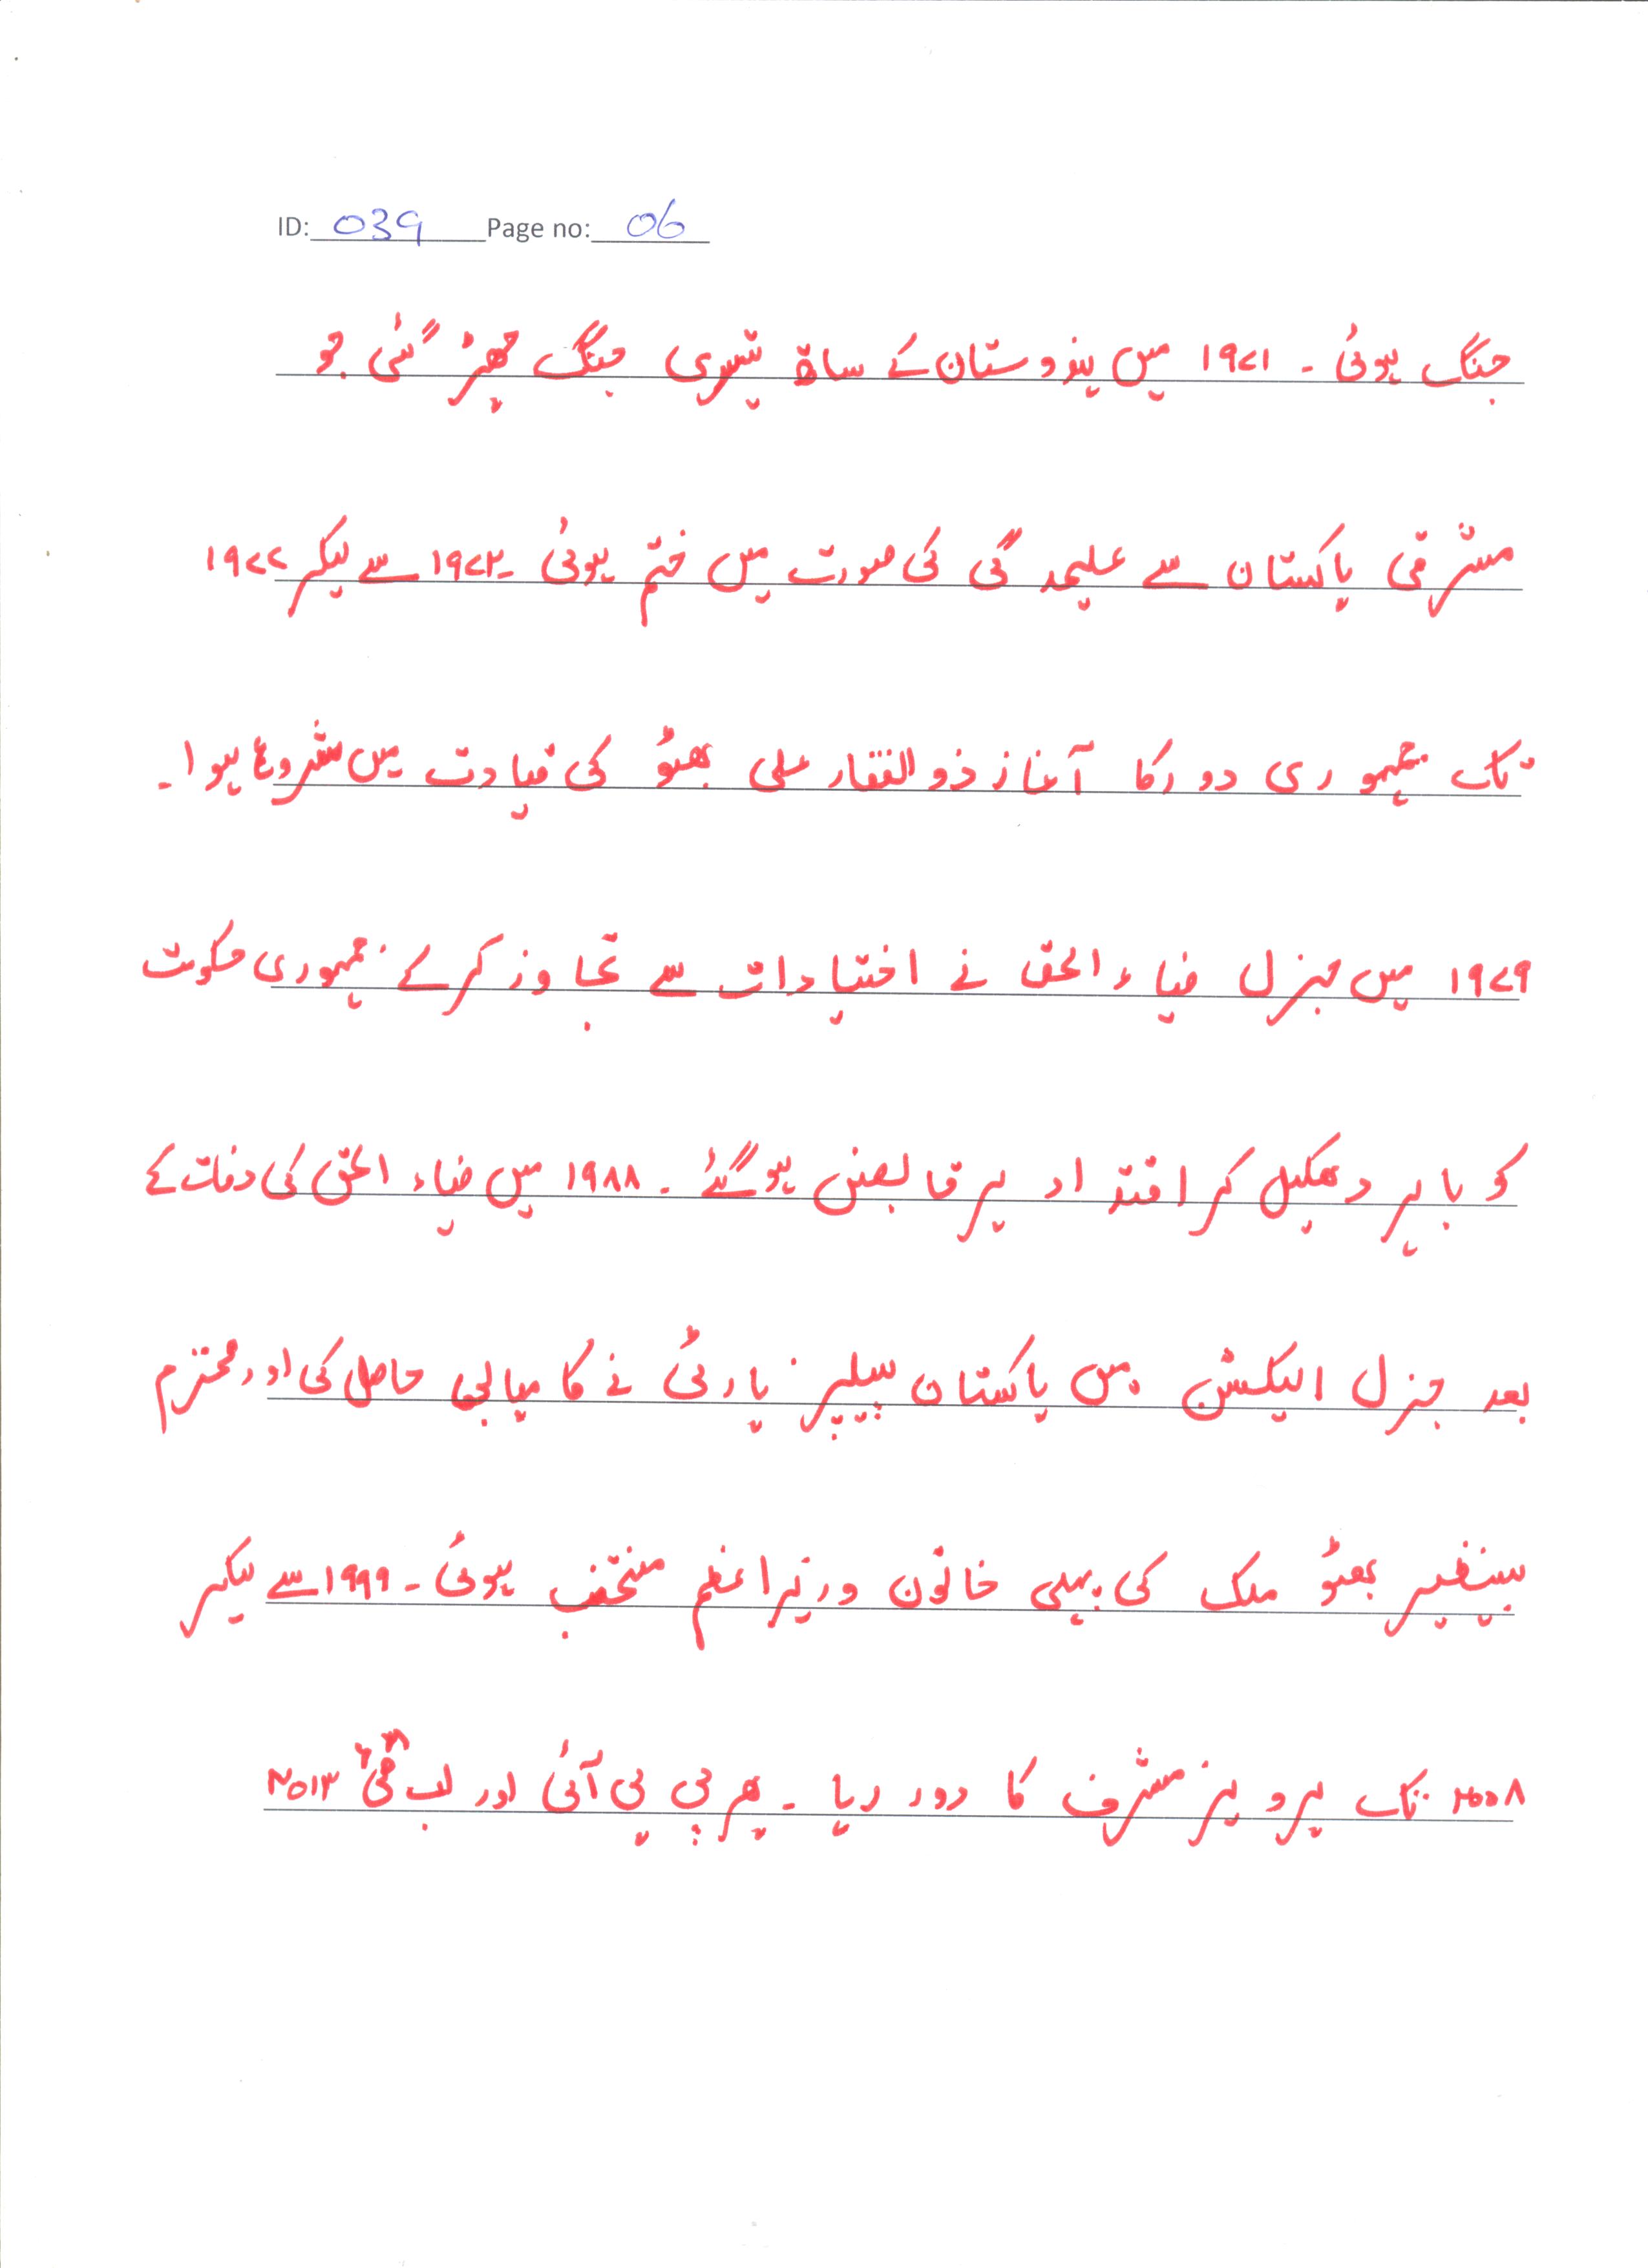 ID: 039 Page no: 06
جنگ ہوئی ۔ ۱۹۷۱ میں ہندوستان کے ساتھ تیسری جنگ چھڑ گئی جو
مشرقی پاکستان سے علیحدگی کی صورت میں ختم ہوئی ۔ ۱۹۷۲ سے لیکر ۱۹۷۷
تک جمہوری دور کا آغاز ذوالفقار علی بھٹو کی قیادت میں شروع ہوا ۔
۱۹۷۹ میں جنرل ضیاء الحق نے اختیارات سے تجاوز کر کے جمہوری حکومت
کو باہر دھکیل کر اقتدار پر قابض ہو گئے ۔ ۱۹۸۸ میں ضیاء الحق کی وفات کے
بعد جنرل الیکشن میں پاکستان پیپلز پارٹی نے کامیابی حاصل کی اور محترم
بینظیر بھٹو ملک کی پہلی خاتون وزیراعظم منتخب ہوئی ۔ ۱۹۹۹ سے لیکر
۲۰۰۸ تک پرویز مشرف کا دور رہا ۔ پھر پی پی آئی اور اب ۲۰۱۳